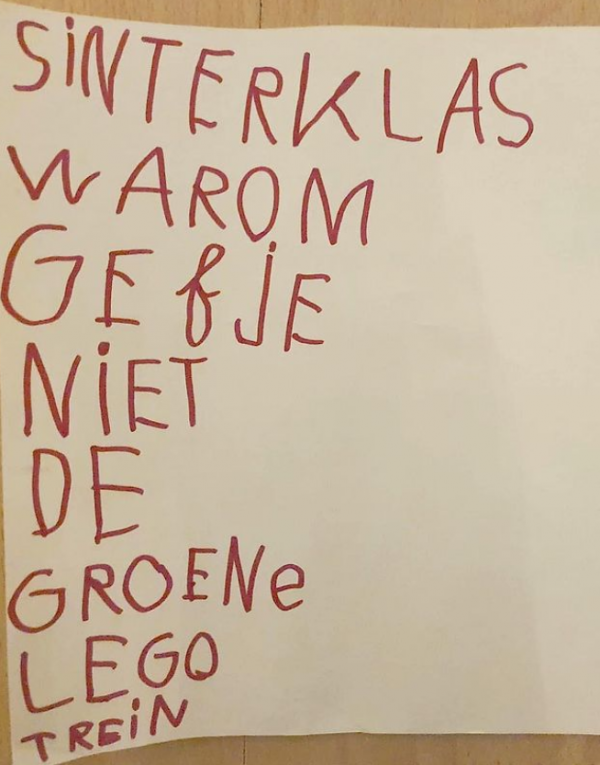 SiNTERKLAS
WAROM
GEf JE
NiET
DE
GROENe
LEGO
TREiN